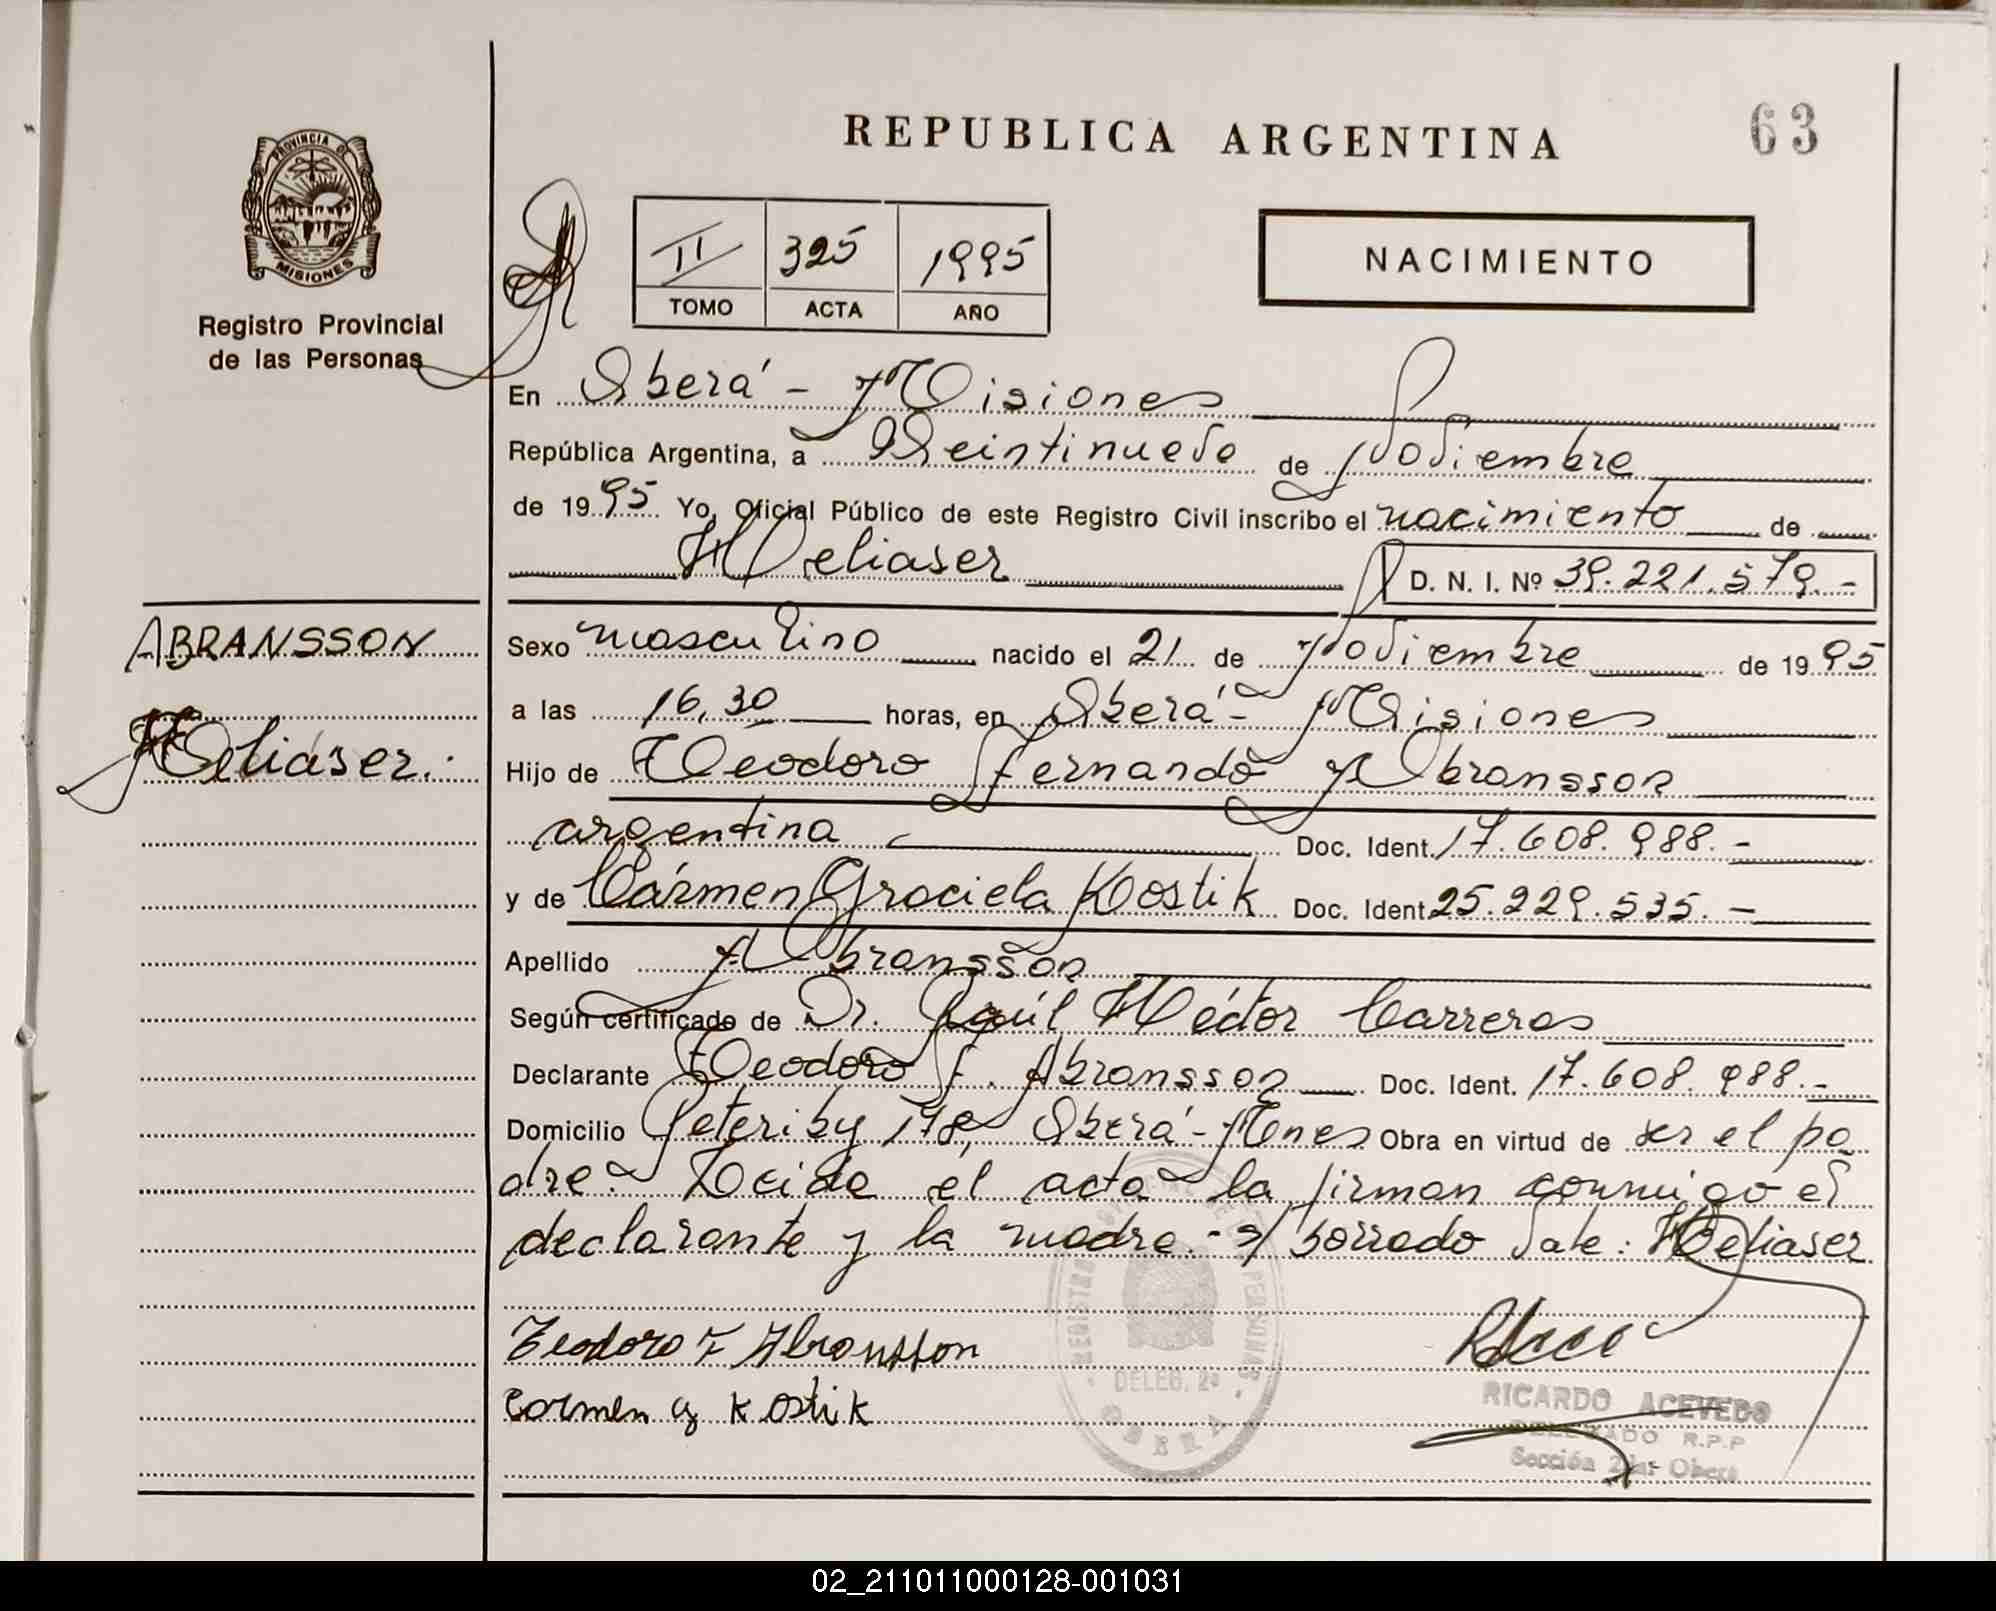 REPUBLICA ARGENTINA
63
PROVINCIA DE
MISIONES
Registro Provincial
de las Personas
II 325 1995
TOMO ACTA AÑO
NACIMIENTO
En Oberá - Misiones
República Argentina, a Veintinueve de Noviembre
de 1995 Yo, Oficial Público de este Registro Civil inscribo el nacimiento de
Heliaser D. N. I. Nº 39.221.579.-
ABRANSSON
Heliaser.
Sexo masculino nacido el 21 de Noviembre de 1995
a las 16,30 horas, en Oberá - Misiones
Hijo de Teodoro Fernando Abransson
argentina Doc. Ident. 17.608.988.-
y de Cármen Graciela Kostik Doc. Ident. 25.229.535.-
Apellido Abransson
Según certificado de Dr. Raúl Héctor Carreras
Declarante Teodoro F. Abransson Doc. Ident. 17.608.988.-
Domicilio Peteriby 178, Oberá - Mnes Obra en virtud de ser el pa
dre. Leída el acta la firman conmigo el
declarante y la madre.- s/ borrado vale: Heliaser
Teodoro F Abransson
Carmen G Kostik
DELEG. 2ª
OBERA
RICARDO ACEVEDO
DELEGADO R.P.P
Sección 2da- Oberá
02_211011000128-001031